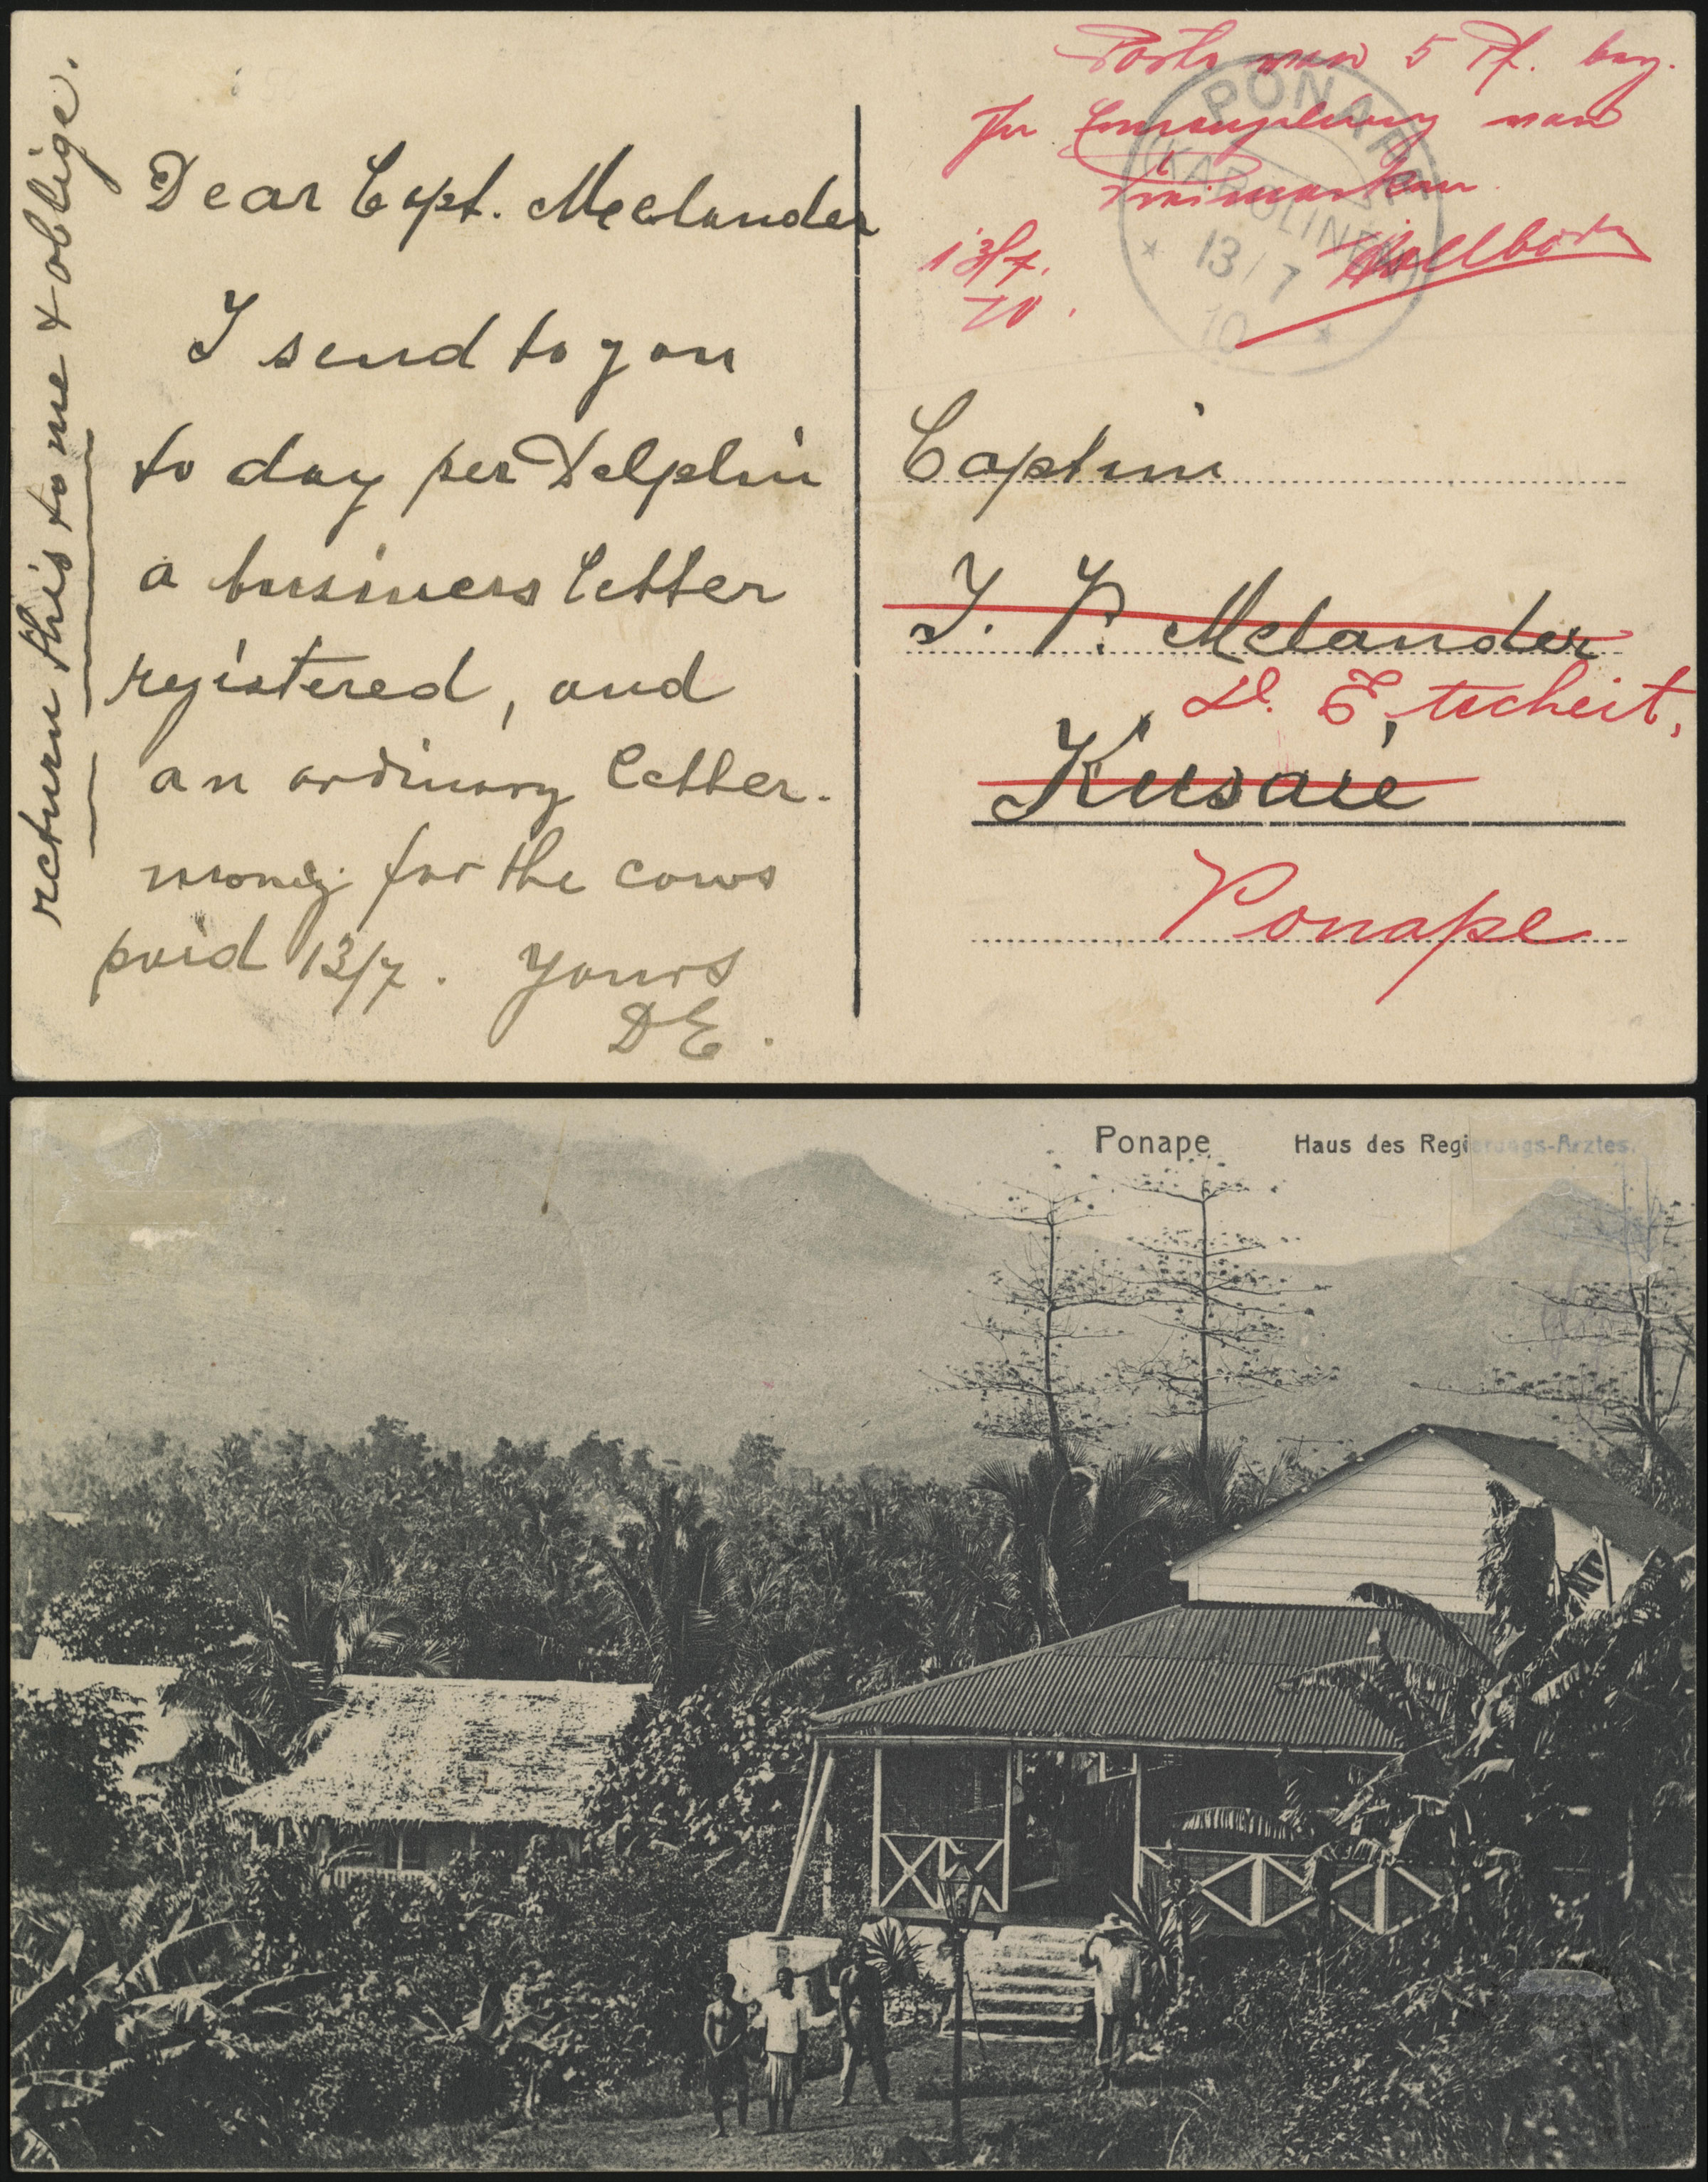 return this to me & oblige.
Dear Capt. Melander
I send to you
to day per Delphin
a business letter
registered, and
an ordinary letter.
money for the cows
paid 13/7. Yours
DE.
Porto von 5 Pf. bez.
In Ermangelung von
Freimarken.
13/7.
10.
PONAPE
(KAROLINEN)
* 13/7 *
10
Captain
T. P. Melander
D. Etscheit,
Kusaie
Ponape
Ponape Haus des Regierungs-Arztes.